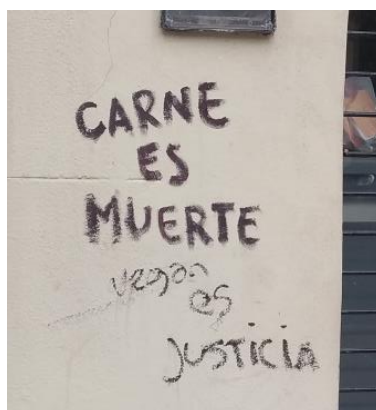 CARNE
ES
MUERTE
vegan
es
JUSTICIA